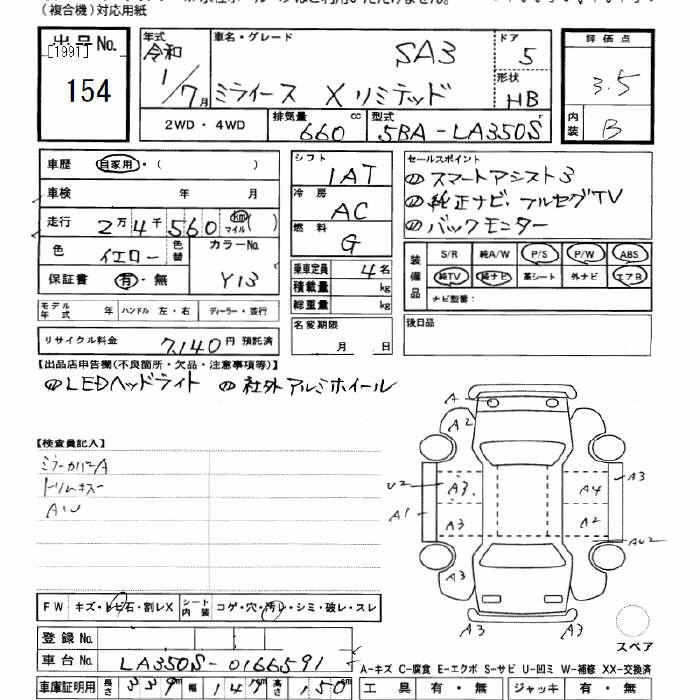 (複合機)対応用紙
出品No. [1991] 154
年式 令和 1/7月
車名・グレード SA3 ミライース X リミテッド
ドア 5
形状 HB
評価点 3.5
内装 B
2WD・4WD
排気量 660 cc
型式 5BA-LA350S
車歴 自家用・( )
車検 年 月
走行 2万4千560 km マイル ( )
色 イエロー 色替
カラーNo. Y13
保証書 有・無
モデル年式 年 ハンドル 左・右 ディーラー・並行
リサイクル料金 7,140円 預託済
シフト IAT
冷房 AC
燃料 G
乗車定員 4名
積載量 kg
総重量 kg
名変期限 月 日
セールスポイント
スマートアシスト3
純正ナビ・フルセグTV
バックモニター
装備品 S/R 純A/W P/S P/W ABS
純TV 純ナビ 革シート 外ナビ エアB
ナビ型番:
後日品
【出品店申告欄(不良箇所・欠品・注意事項等)】
LEDヘッドライト 社外アルミホイール
【検査員記入】
ミラーカバーA
トリムキズ
A A2 A3 A4 A3 U2 A1 A3 A2 AU2 A3 A3 A3
スペア
FW キズ・トビ石・割レX シート内装 コゲ・穴・汚レ・シミ・破レ・スレ
登録No.
車台No. LA350S-0166591
A-キズ C-腐食 E-エクボ S-サビ U-凹ミ W-補修 XX-交換済
車庫証明用 長さ 339 幅 147 高さ 150
工具 有・無 ジャッキ 有・無